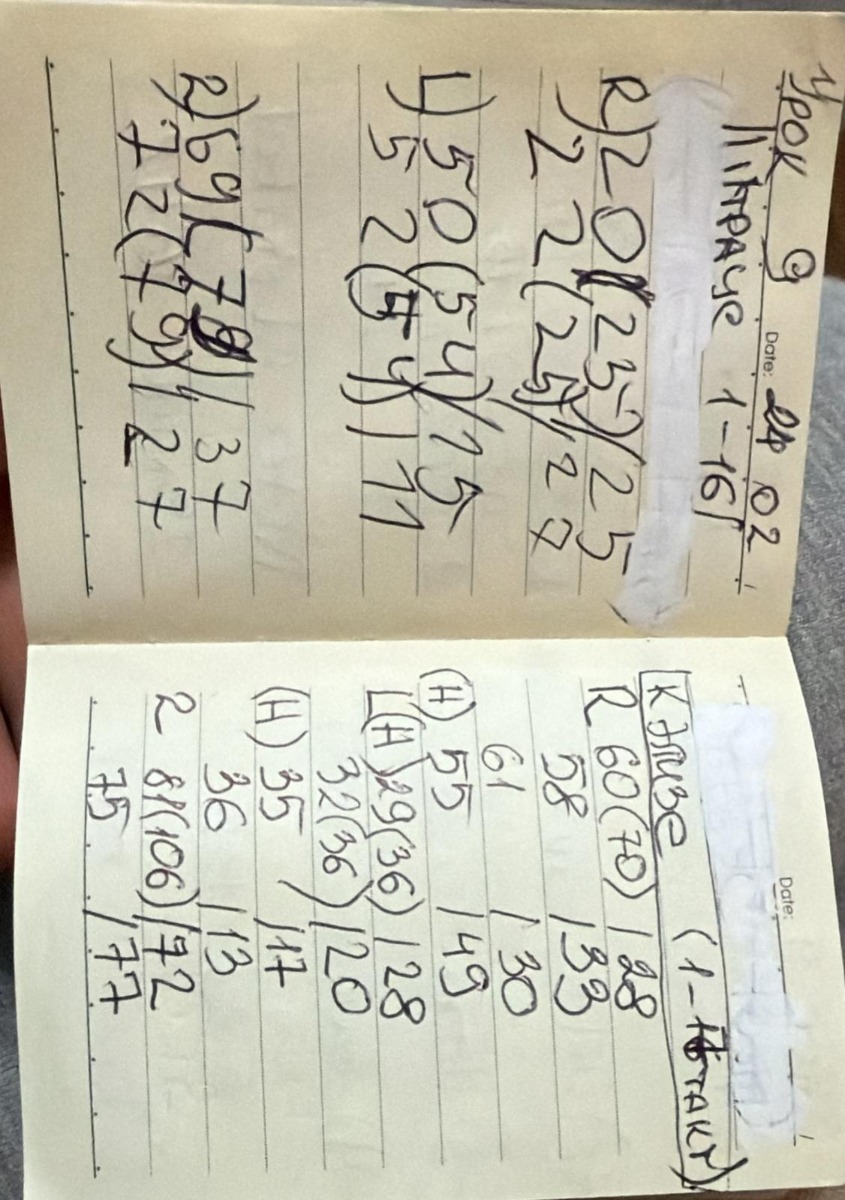 Урок 9
Date: 24 02
Пітраце 1-16
R) 20 (25) / 25
) 22 (25) / 27
L) 50 (54) / 15
) 5 2 (54) / 11
2) 69 (79) / 37
) 72 (79) / 27
Date:
К Элизе (1-16 такт)
R 60 (70) / 28
58 / 33
61 / 30
(H) 55 / 49
L(H) 29 (36) / 28
32 (36) / 20
(H) 35 / 17
36 / 13
2 81 (106) / 72
75 / 77